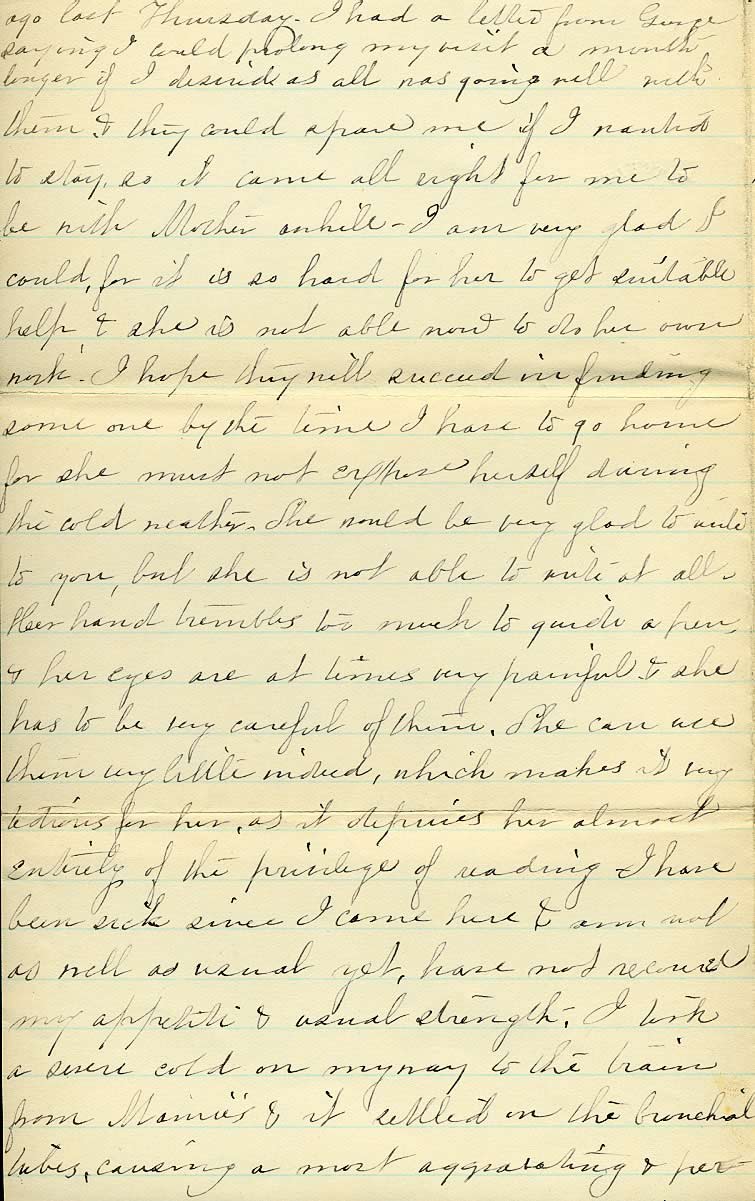 ago last Thursday - I had a letter from George
saying I could prolong my visit a month
longer if I desired as all was going well with
them & they could spare me if I wanted
to stay, so it came all right for me to
be with Mother awhile - I am very glad I
could, for it is so hard for her to get suitable
help & she is not able now to do her own
work. I hope they will succeed in finding
some one by the time I have to go home
for she must not expose herself during
the cold weather. She would be very glad to write
to you, but she is not able to write at all.
Her hand trembles too much to guide a pen,
& her eyes are at times very painful & she
has to be very careful of them. She can use
them very little indeed, which makes it very
tedious for her, as it deprives her almost
entirely of the privilege of reading - I have
been sick since I came here & am not
as well as usual yet, have not recovered
my appetite & usual strength. I took
a severe cold on my way to the train
from Mamie's & it settled in the bronchial
tubes, causing a most aggravating & per-